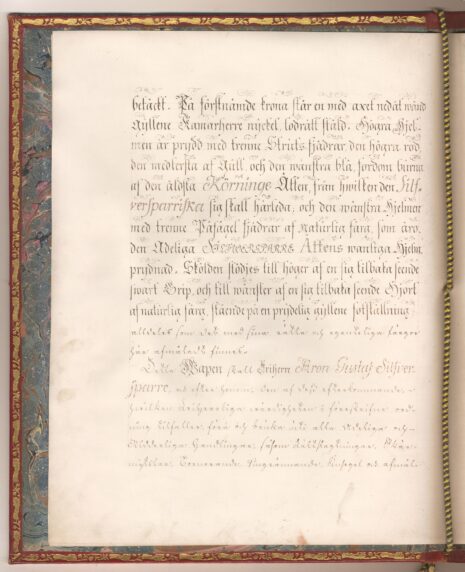 betäckt. På förstnämde krona står en med axet nedåt wänd
Gyllene Kamarherre nyckel, lodrätt stäld. Högra Hjel-
men är prydd med trenne Struts fjädrar den högra röd
den medlersta af Gull och den wänstra blå, fordom burna
af den äldsta Körninge Ätten, från hwilken den Silf-
versparriska sig skall härleda, och den wänstra Hjelmen
med trenne Påfogel fjädrar af Naturlig färg, som äro,
den Adeliga Silfwersparre Ättens wanliga Hjelm
prydnad. Skölden stödjes till höger af en sig tilbaka seende
swart Grip, och till wänster af en sig tilbaka seende Hjort
af naturlig färg, stående på en prydelig gyllene fotställning
alldeles som det med sina rätta och egenteliga färgor
här afmåladt finnes.
Detta Wapen skall Friherr Aron Gustaf Silfver-
sparre, och efter honom den af dess efterkommande,
hvilken Friherrliga värdigheten i föreskrifven ord-
ning tilfaller, föra och bruka uti alla Adeliga och
Ridderliga Handlingar, såsom
Tornerande, och afmål-